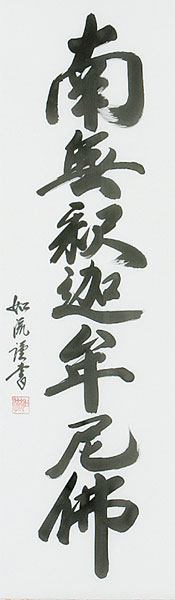 南無釈迦牟尼佛
如流謹書